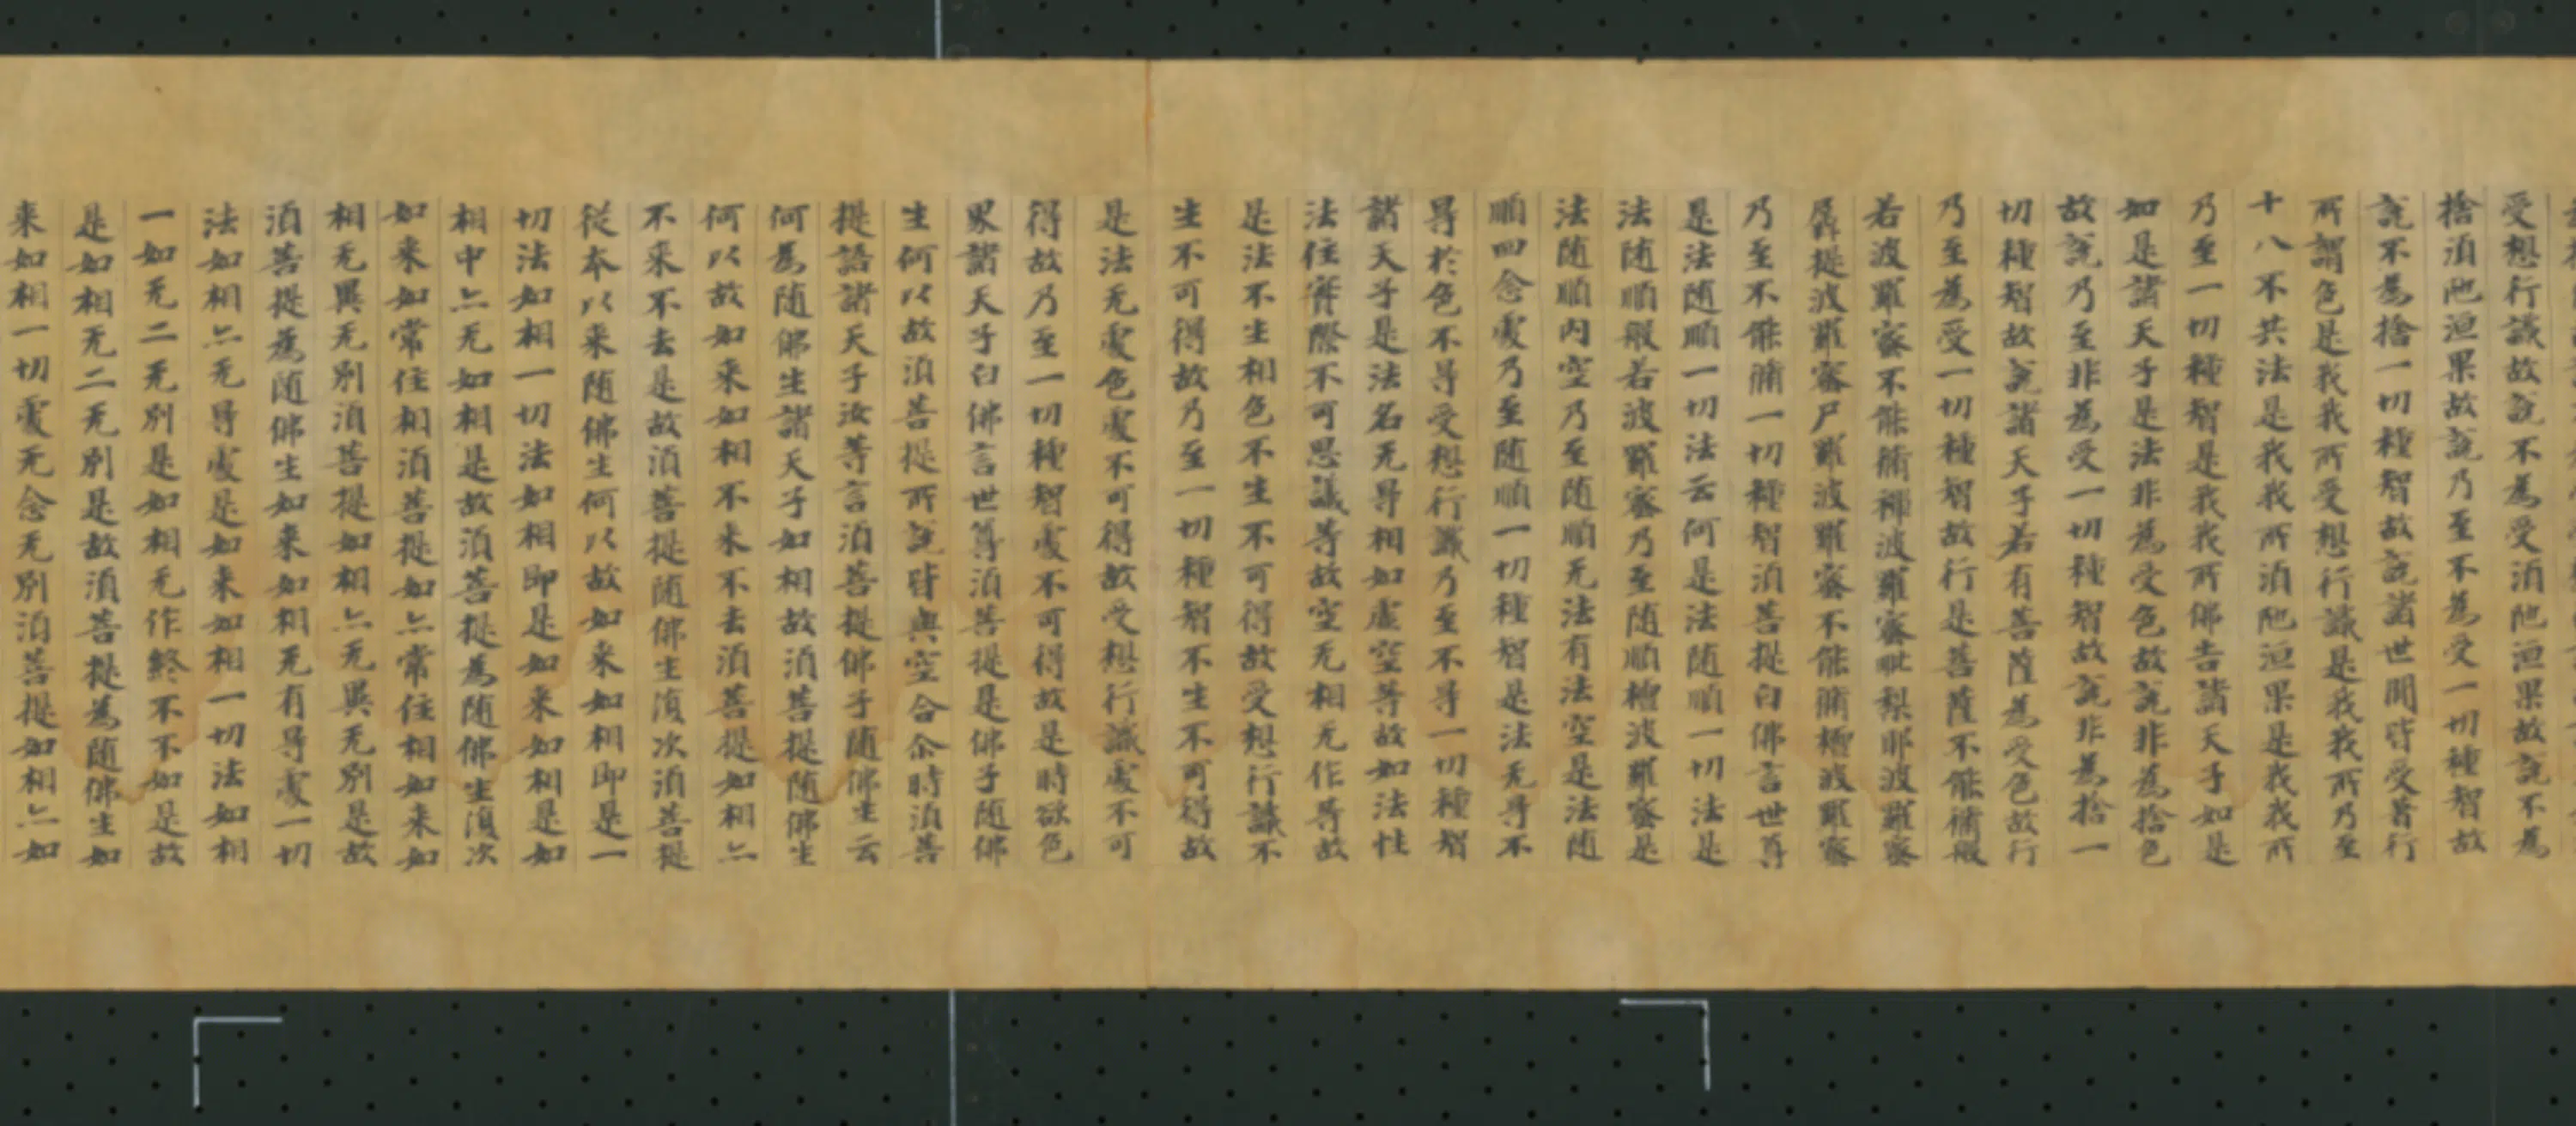 受想行識故說不為受湏陁洹果故說不為
捨湏陁洹果故說乃至不為受一切種智故
說不為捨一切種智故說諸世間皆受著行
所謂色是我我所受想行識是我我所乃至
十八不共法是我我所湏陁洹果是我我所
乃至一切種智是我我所佛告諸天子如是
如是諸天子是法非為受色故說非為捨色
故說乃至非為受一切種智故說非為捨一
切種智故說諸天子若有菩薩為受色故行
乃至為受一切種智故行是菩薩不能脩般
若波羅蜜不能脩禪波羅蜜毗梨耶波羅蜜
羼提波羅蜜尸羅波羅蜜不能脩檀波羅蜜
乃至不能脩一切種智湏菩提白佛言世尊
是法随順一切法云何是法随順一切法是
法随順般若波羅蜜乃至随順檀波羅蜜是
法随順内空乃至随順无法有法空是法随
順四念處乃至随順一切種智是法无㝵不
㝵於色不㝵受想行識乃至不㝵一切種智
諸天子是法名无㝵相如虛空等故如法性
法住實際不可思議等故空无相无作等故
是法不生相色不生不可得故受想行識不
生不可得故乃至一切種智不生不可得故
是法无處色處不可得故受想行識處不可
得故乃至一切種智處不可得故是時欲色
界諸天子白佛言世尊湏菩提是佛子随佛
生何以故湏菩提所說皆與空合尒時湏菩
提語諸天子汝等言湏菩提佛子随佛生云
何為随佛生諸天子如相故湏菩提随佛生
何以故如来如相不来不去湏菩提如相亦
不来不去是故湏菩提随佛生復次湏菩提
従本以来随佛生何以故如来如相即是一
切法如相一切法如相即是如来如相是如
相中亦无如相是故湏菩提為随佛生復次
如来如常住相湏菩提如亦常住相如来如
相无異无別湏菩提如相亦无異无別是故
湏菩提為随佛生如来如相无有㝵處一切
法如相亦无㝵處是如来如相一切法如相
一如无二无別是如相无作終不不如是故
是如相无二无別是故湏菩提為随佛生如
来如相一切處无念无別湏菩提如相亦如